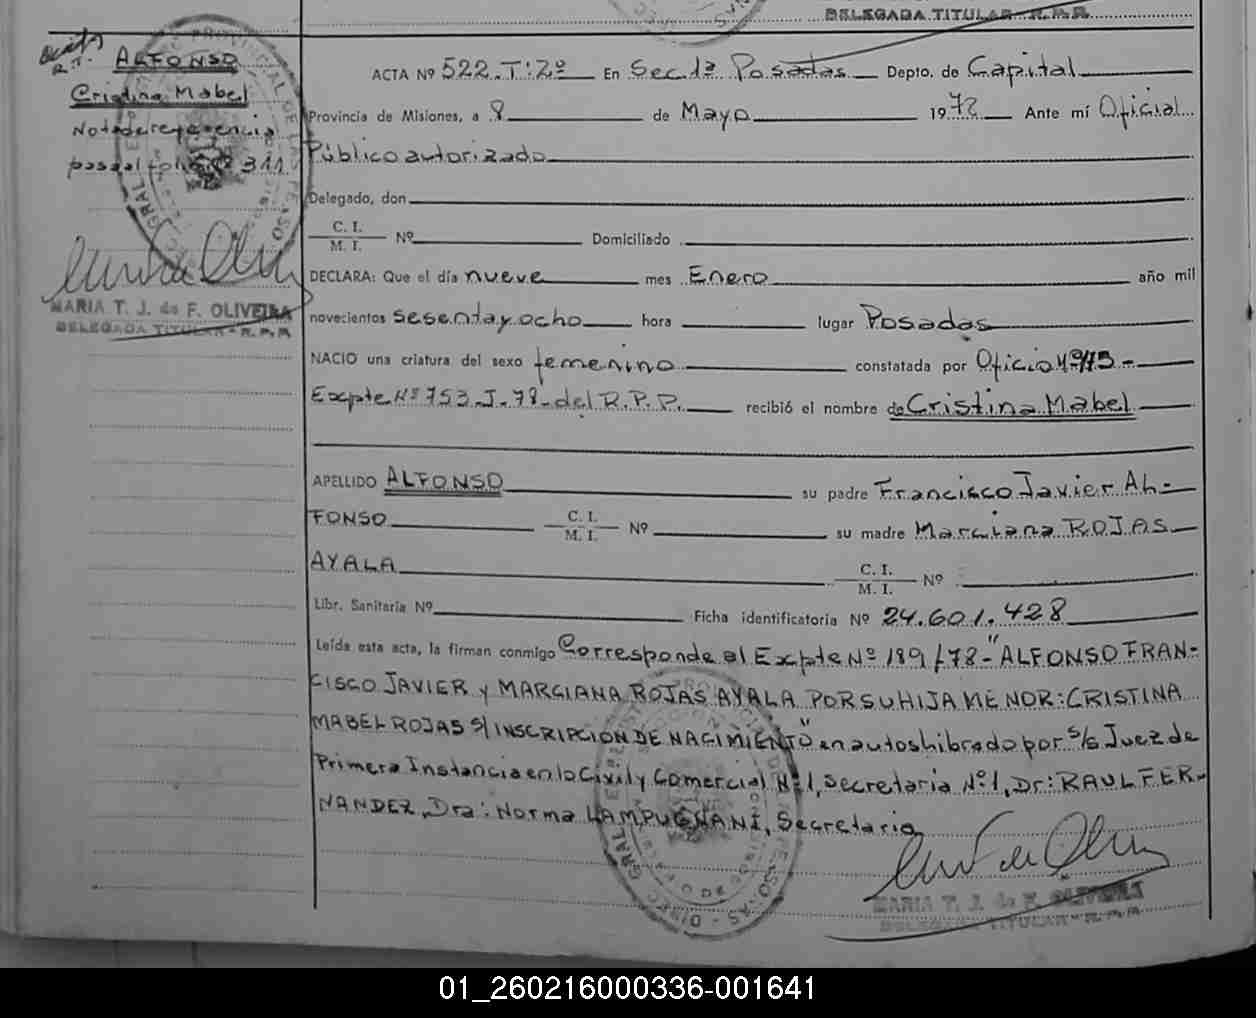 DELEGADA TITULAR - R.P.P.
R.T. ALFONSO
Cristina Mabel
Nota de referencia
pasa al folio Nº 311
MARIA T. J. de F. OLIVEIRA
DELEGADA TITULAR - R.P.P.
ACTA Nº 522.T:2º En Sec.1ª Posadas Depto. de Capital
Provincia de Misiones, a 8 de Mayo 1978 Ante mí Oficial
Público autorizado
Delegado, don
C. I.
M. I. Nº Domiciliado
DECLARA: Que el día nueve mes Enero año mil
novecientos sesenta y ocho hora lugar Posadas
NACIO una criatura del sexo femenino constatada por Oficio Nº 975-
Expte Nº 753-J-78-del R.P.P. recibió el nombre de Cristina Mabel
APELLIDO ALFONSO su padre Francisco Javier AL-
FONSO C. I.
M. I. Nº su madre Marciana ROJAS
AYALA C. I.
M. I. Nº
Libr. Sanitaria Nº Ficha identificatoria Nº 24.601.428
Leída esta acta, la firman conmigo Corresponde al Expte Nº 189/78-"ALFONSO FRAN-
CISCO JAVIER y MARCIANA ROJAS AYALA POR SU HIJA MENOR: CRISTINA
MABEL ROJAS S/ INSCRIPCION DE NACIMIENTO" en autos librado por S/S Juez de
Primera Instancia en lo Civil y Comercial Nº 1, Secretaria Nº 1, Dr: RAUL FER-
NANDEZ, Dra: Norma LAMPUGNANI, Secretaria
MARIA T. J. de F. OLIVEIRA
DELEGADA TITULAR - R.P.P.
01_260216000336-001641